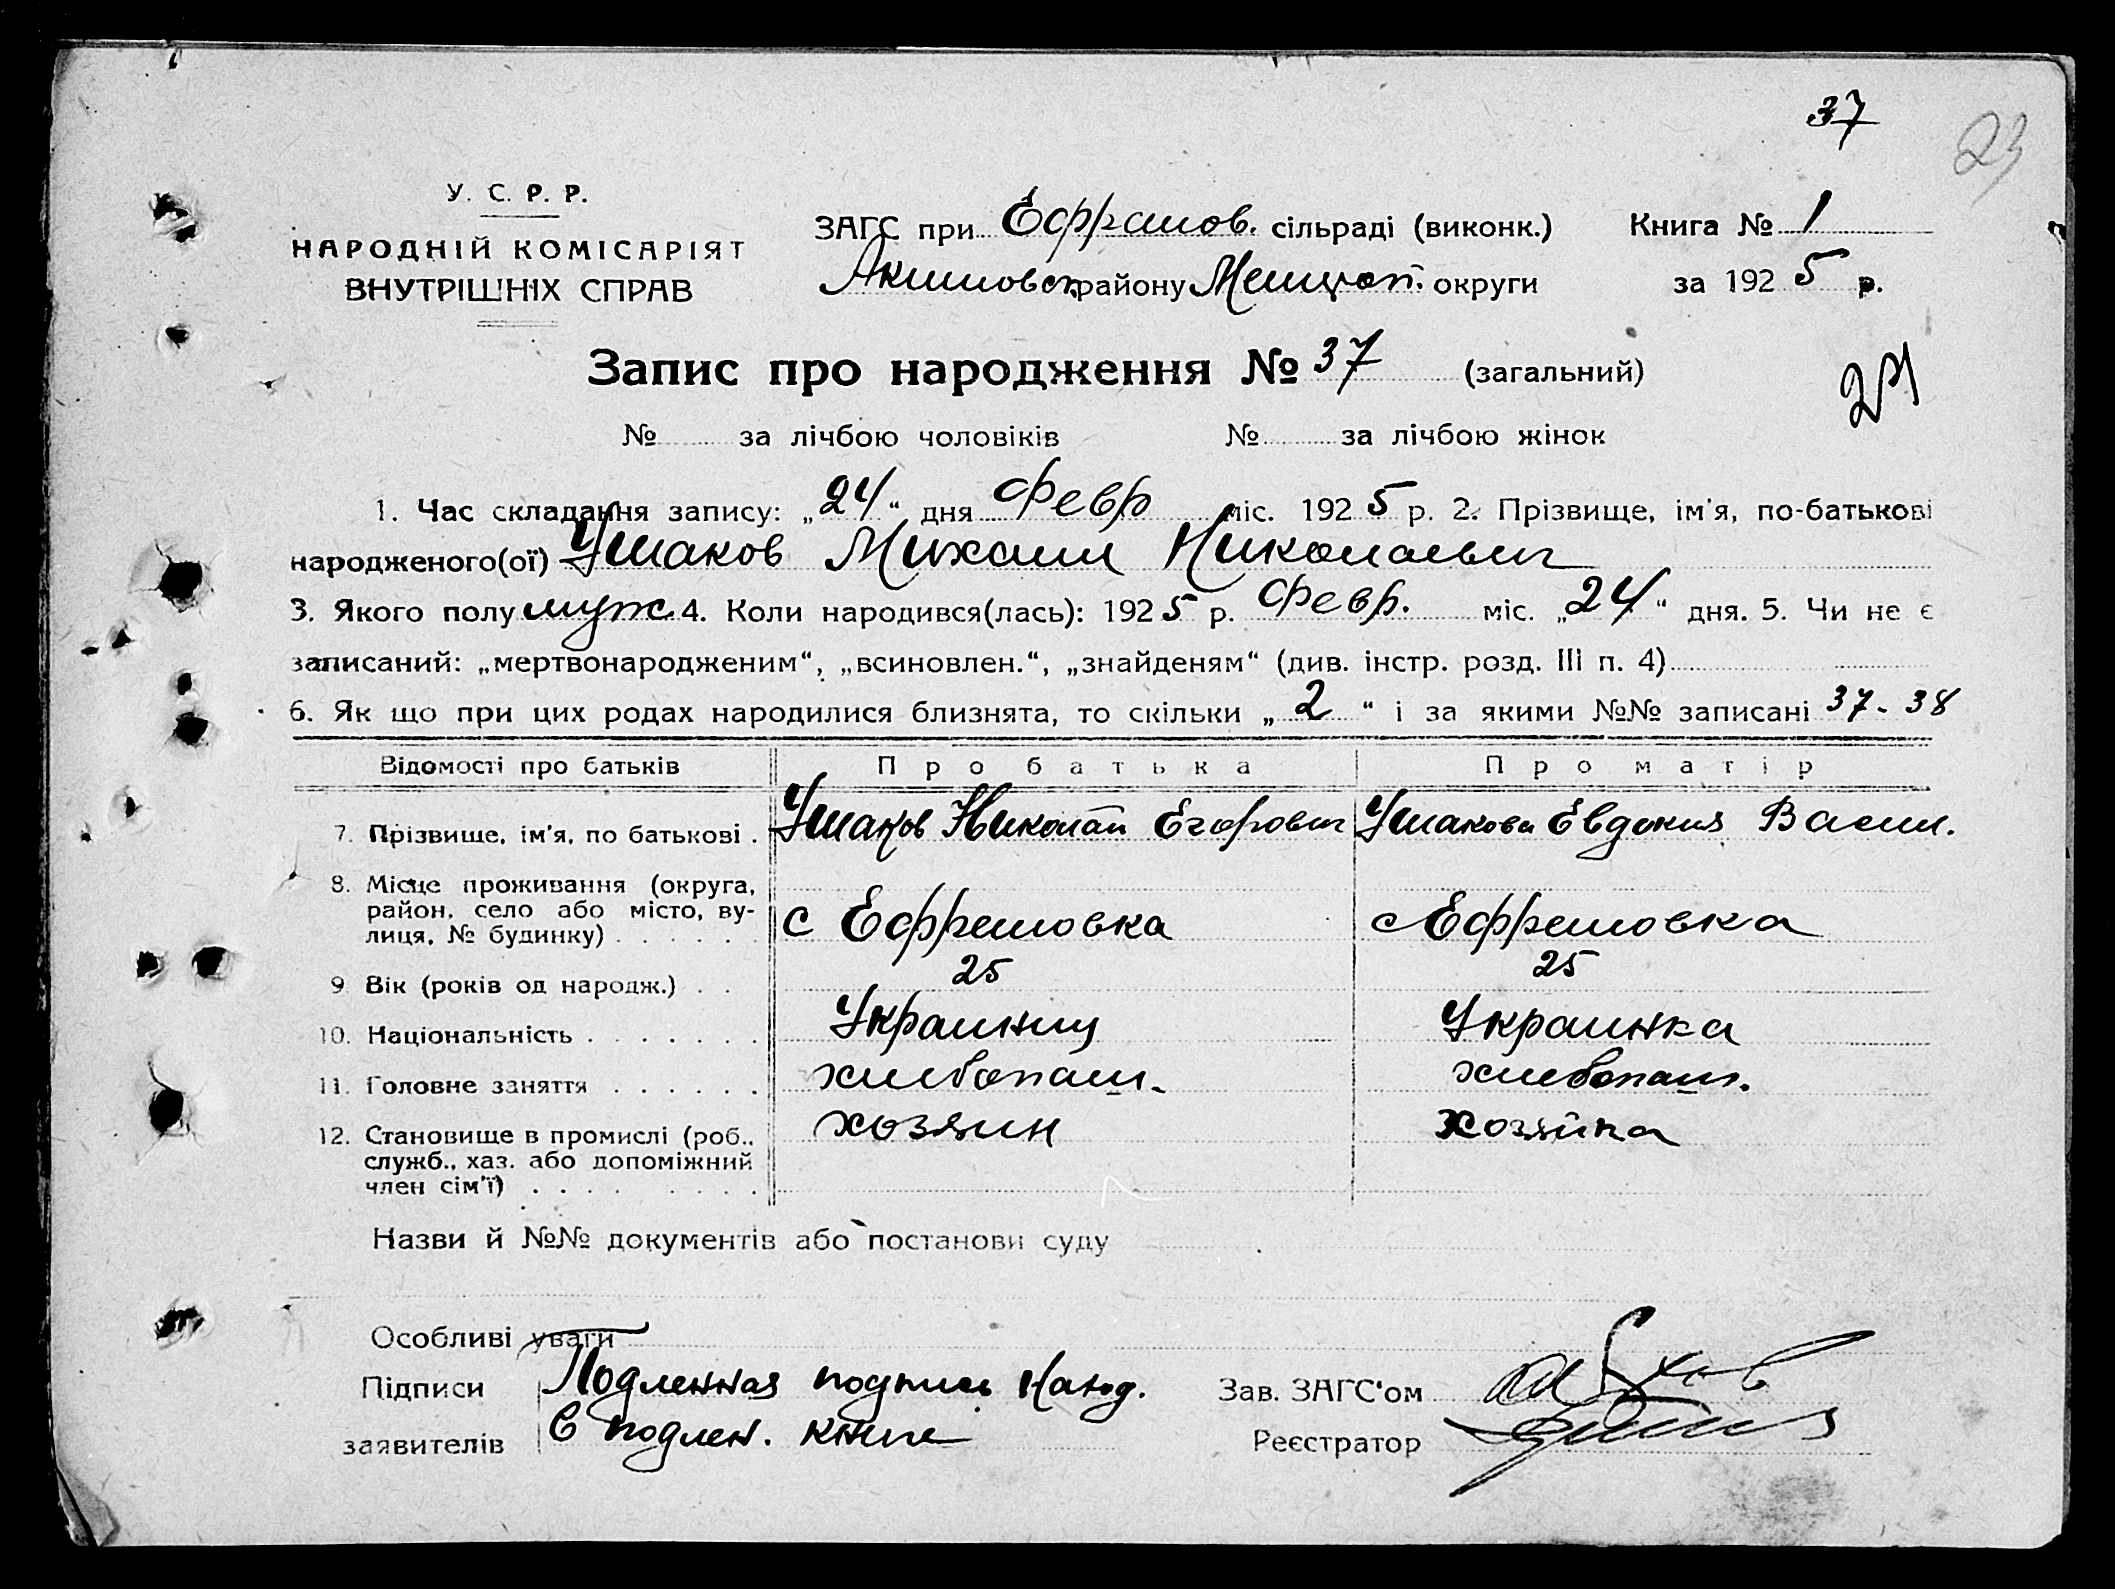 37
23
У. С. Р. Р.
НАРОДНІЙ КОМІСАРІЯТ
ВНУТРІШНІХ СПРАВ
ЗАГС при Ефремов. сільраді (виконк.)
Акимовск району Мелитоп. округи
Книга № 1
за 1925 р.
Запис про народження № 37 (загальний)
24
№ за лічбою чоловіків № за лічбою жінок
1. Час складання запису: „24“ дня Февр міс. 1925 р. 2. Прізвище, ім'я, по-батькові
народженого(ої) Ушаков Михаил Николаевич
3. Якого полу муж 4. Коли народився(лась): 1925 р. Февр. міс. „24“ дня. 5. Чи не є
записаний: „мертвонародженим“, „всиновлен.“, „знайденям“ (див. інстр. розд. III п. 4)
6. Як що при цих родах народилися близнята, то скільки „2“ і за якими №№ записані 37-38
Відомості про батьків Про батька Про матір
7. Прізвище, ім'я, по батькові . Ушаков Николай Егорович Ушакова Евдокия Васил.
8. Місце проживання (округа,
район, село або місто, ву-
лиця, № будинку) . . . . . . с Ефремовка с Ефремовка
9 Вік (років од народж.) . . 25 25
10. Національність . . . . . . . Украинец Украинка
11. Головне заняття . . . . . . хлебопаш. хлебопаш.
12. Становище в промислі (роб.,
служб., хаз. або допоміжний
член сім'ї) . . . . . . . . хозяин хозяйка
Назви й №№ документів або постанови суду
Особливі уваги
Підписи
заявителів
Подленная подпись
в подлен. книге
Зав. ЗАГС'ом
Реєстратор